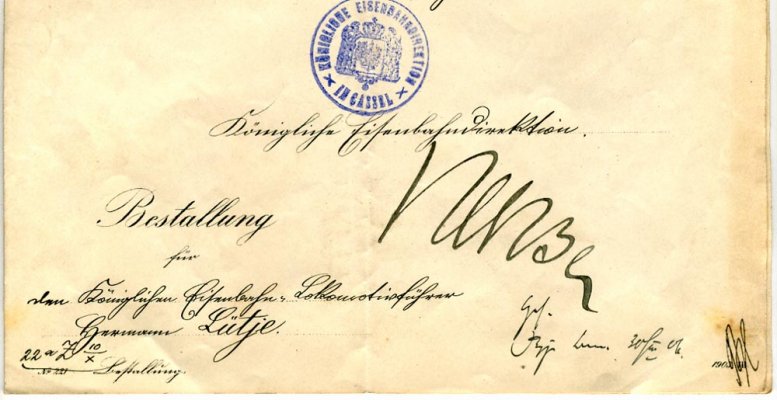 KÖNIGLICHE EISENBAHNDIREKTION
IN CASSEL
Königliche Eisenbahndirektion.
Bestallung
für
den Königlichen Eisenbahn-Lokomotivführer
Hermann Lütje.
22a
Bestallung.